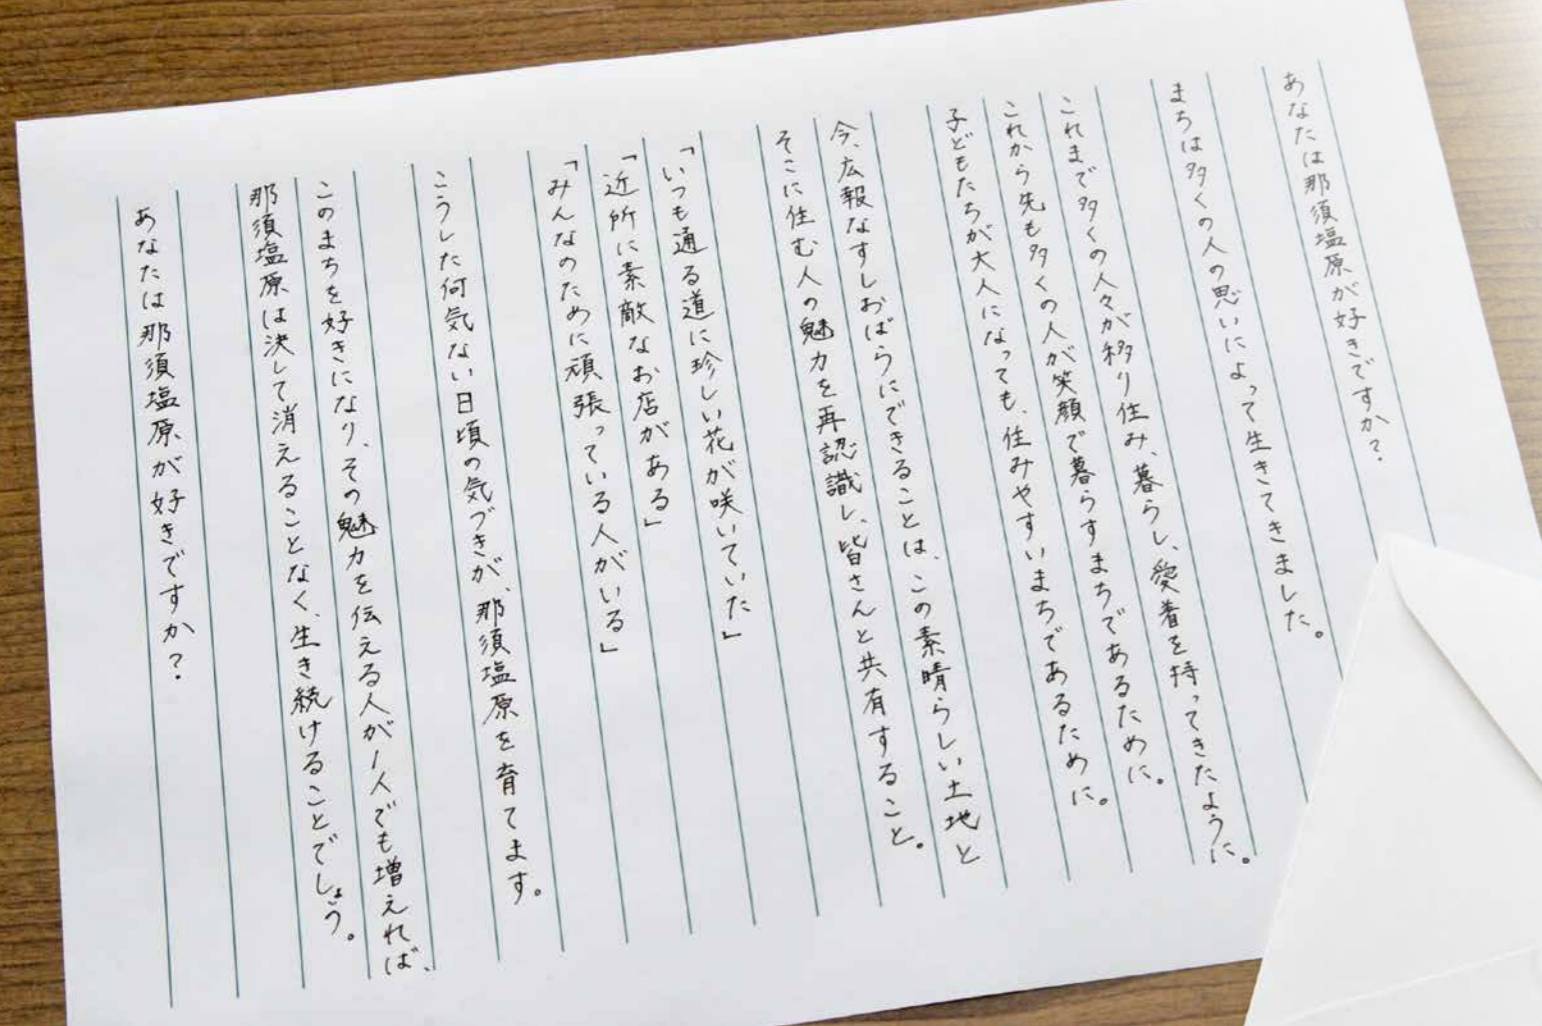 あなたは那須塩原が好きですか？
まちは多くの人の思いによって生きてきました。
これまで多くの人々が移り住み、暮らし、愛着を持ってきたように。
これから先も多くの人が笑顔で暮らすまちであるために。
子どもたちが大人になっても、住みやすいまちであるために。
今、広報なすしおばらにできることは、この素晴らしい土地と
そこに住む人の魅力を再認識し、皆さんと共有すること。
「いつも通る道に珍しい花が咲いていた」
「近所に素敵なお店がある」
「みんなのために頑張っている人がいる」
こうした何気ない日頃の気づきが、那須塩原を育てます。
このまちを好きになり、その魅力を伝える人が1人でも増えれば、
那須塩原は決して消えることなく、生き続けることでしょう。
あなたは那須塩原が好きですか？